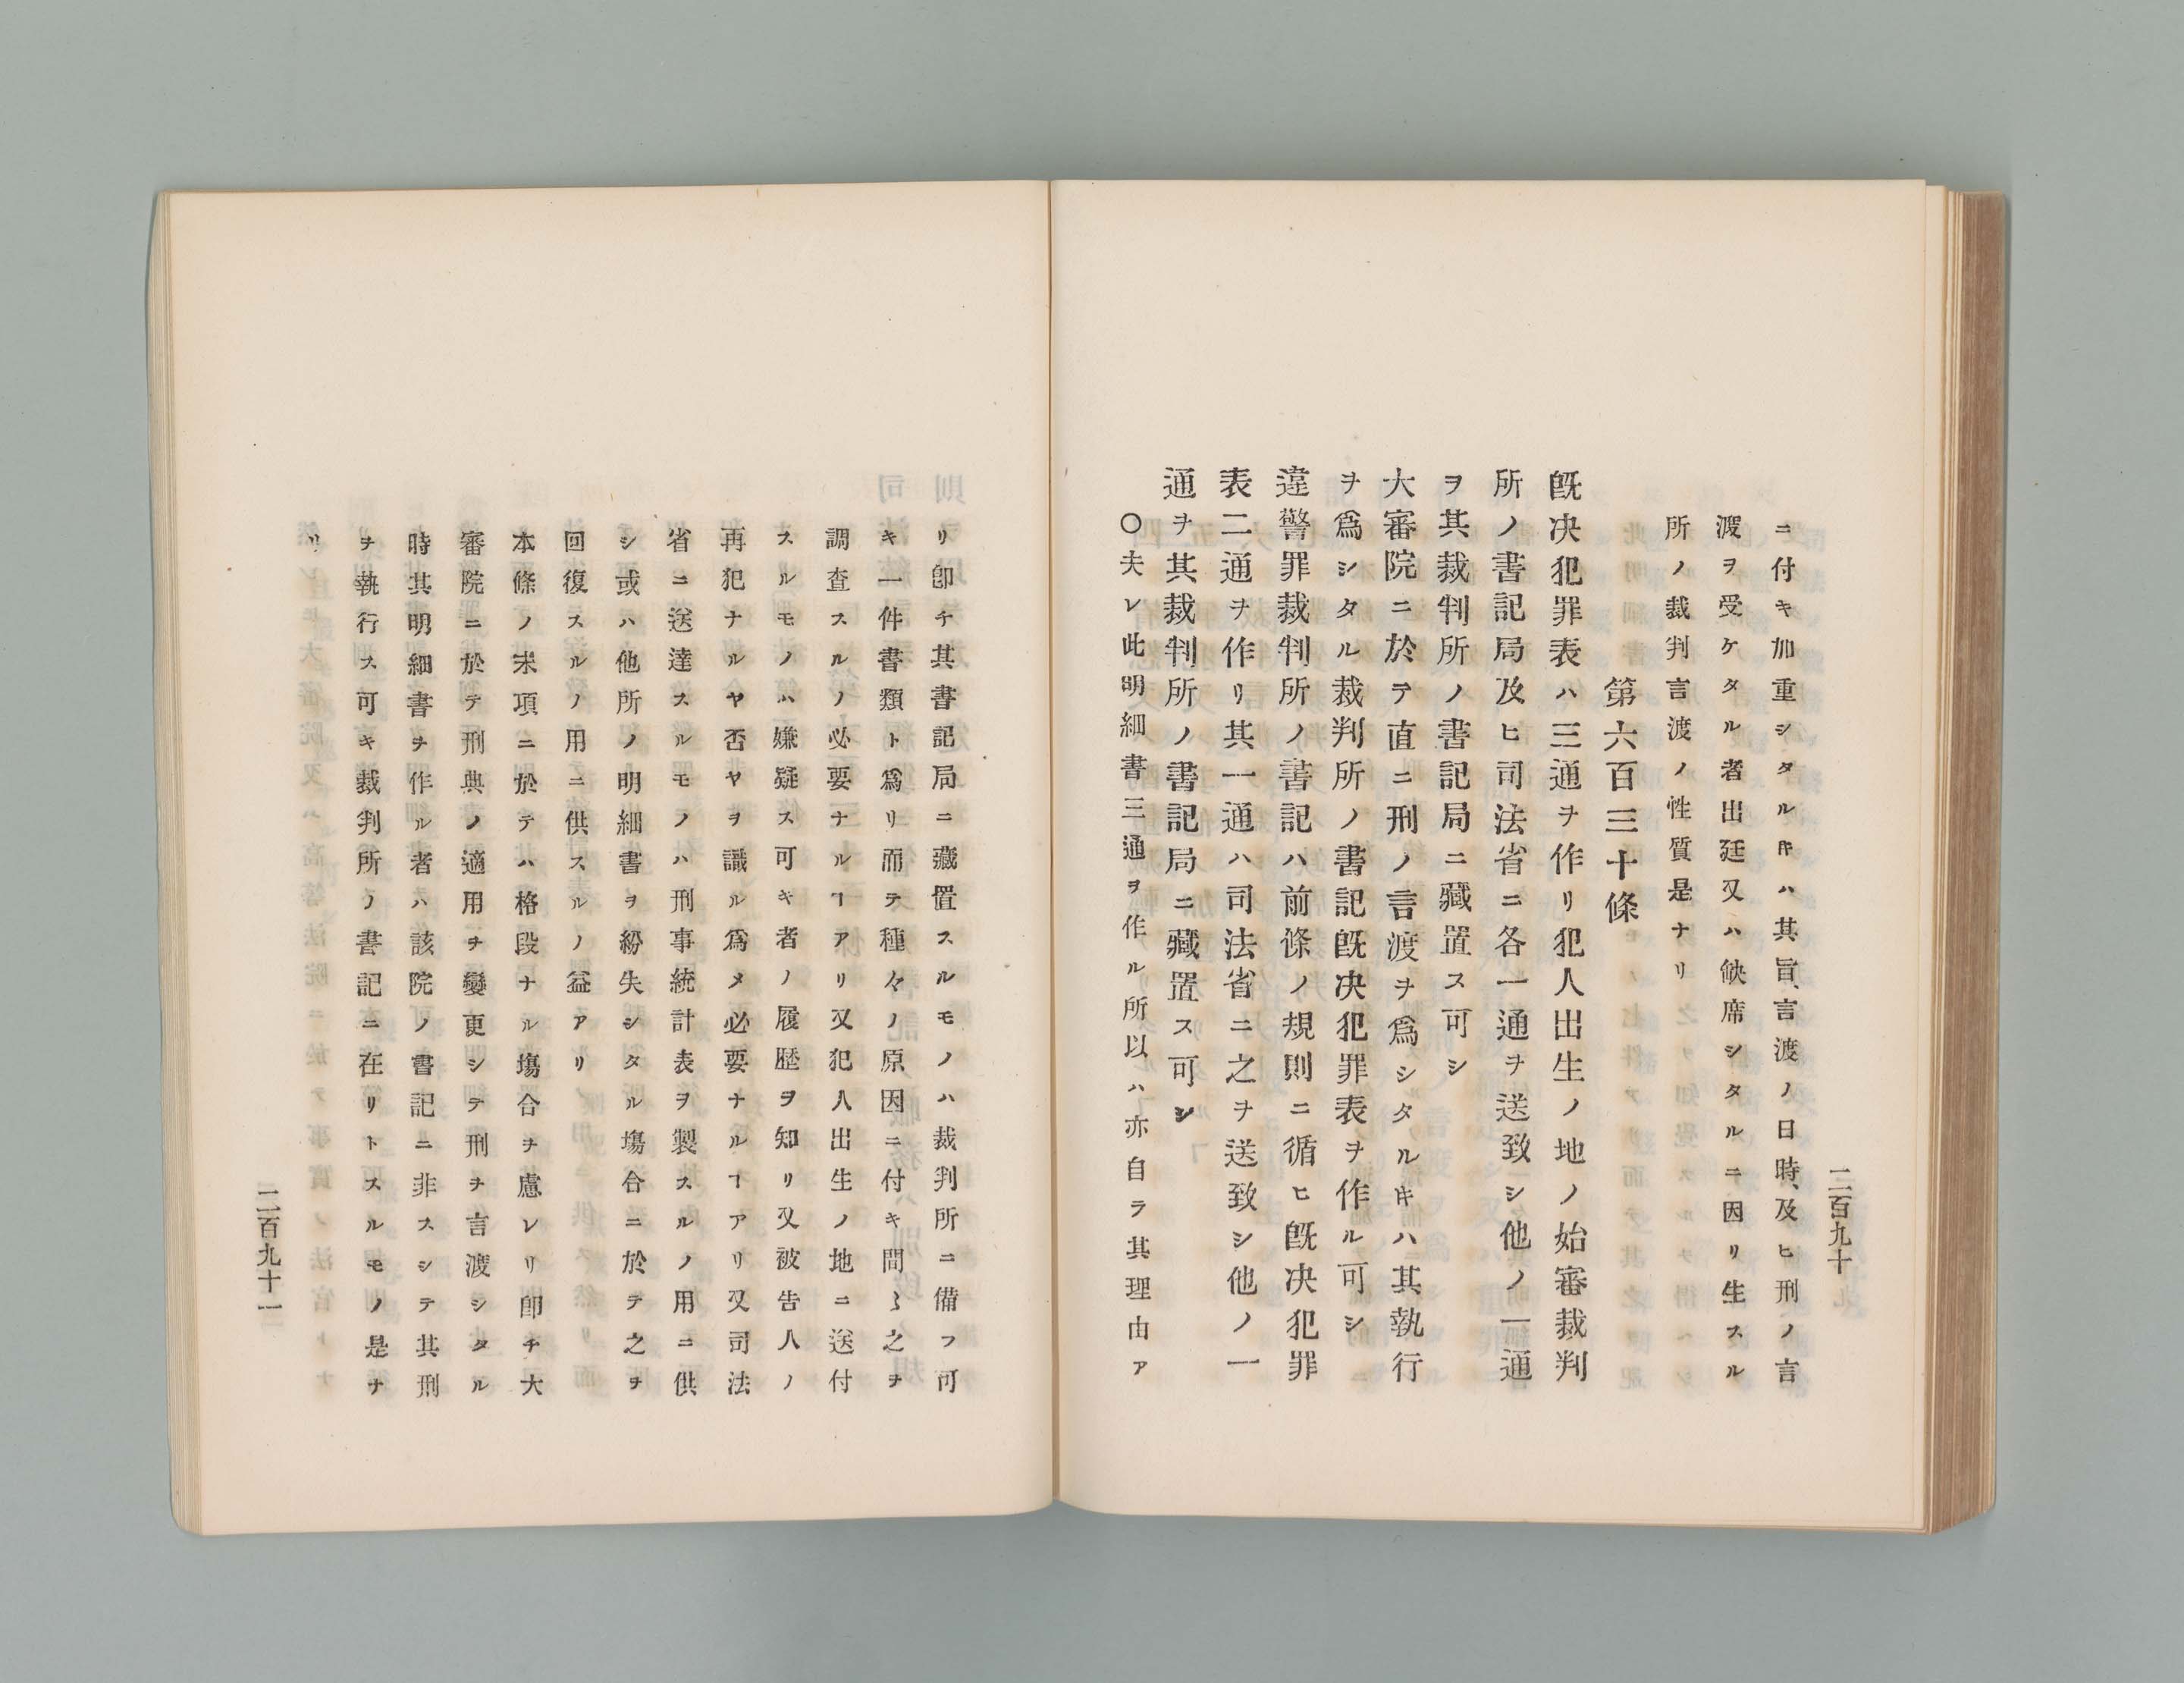 二百九十
ニ付キ加重シタルㇳキハ其旨、言渡ノ日時、及ヒ刑ノ言
渡ヲ受ケタル者出廷又ハ缺席シタルニ因リ生スル
所ノ裁判言渡ノ性質是ナリ
第六百三十條
既决犯罪表ハ三通ヲ作リ犯人出生ノ地ノ始審裁判
所ノ書記局及ヒ司法省ニ各一通ヲ送致シ他ノ一通
ヲ其裁判所ノ書記局ニ藏置ス可シ
大審院ニ於テ直ニ刑ノ言渡ヲ爲シタルㇳキハ其執行
ヲ爲シタル裁判所ノ書記既决犯罪表ヲ作ル可シ
違警罪裁判所ノ書記ハ前條ノ規則ニ循ヒ既决犯罪
表二通ヲ作リ其一通ハ司法省ニ之ヲ送致シ他ノ一
通ヲ其裁判所ノ書記局ニ藏置ス可シ
〇夫レ此明細書三通ヲ作ル所以ハ亦自ラ其理由ア
リ卽チ其書記局ニ藏置スルモノハ裁判所ニ備フ可
キ一件書類ト爲リ而テ種々ノ原因ニ付キ間〻之ヲ
調査スルノ必要ナルヿアリ又犯人出生ノ地ニ送付
スルモノハ嫌疑ス可キ者ノ履歴ヲ知リ又被告人ノ
再犯ナルヤ否ヤヲ識ル爲メ必要ナルヿアリ又司法
省ニ送達スルモノハ刑事統計表ヲ製スルノ用ニ供
シ或ハ他所ノ明細書ヲ紛失シタル塲合ニ於テ之ヲ
回復スルノ用ニ供スルノ益アリ
本條ノ末項ニ於テハ格段ナル塲合ヲ慮レリ卽チ大
審院ニ於テ刑典ノ適用ヲ變更シテ刑ヲ言渡シタル
時其明細書ヲ作ル者ハ該院ノ書記ニ非スシテ其刑
ヲ執行ス可キ裁判所ノ書記ニ在リトスルモノ是ナ
リ
二百九十一